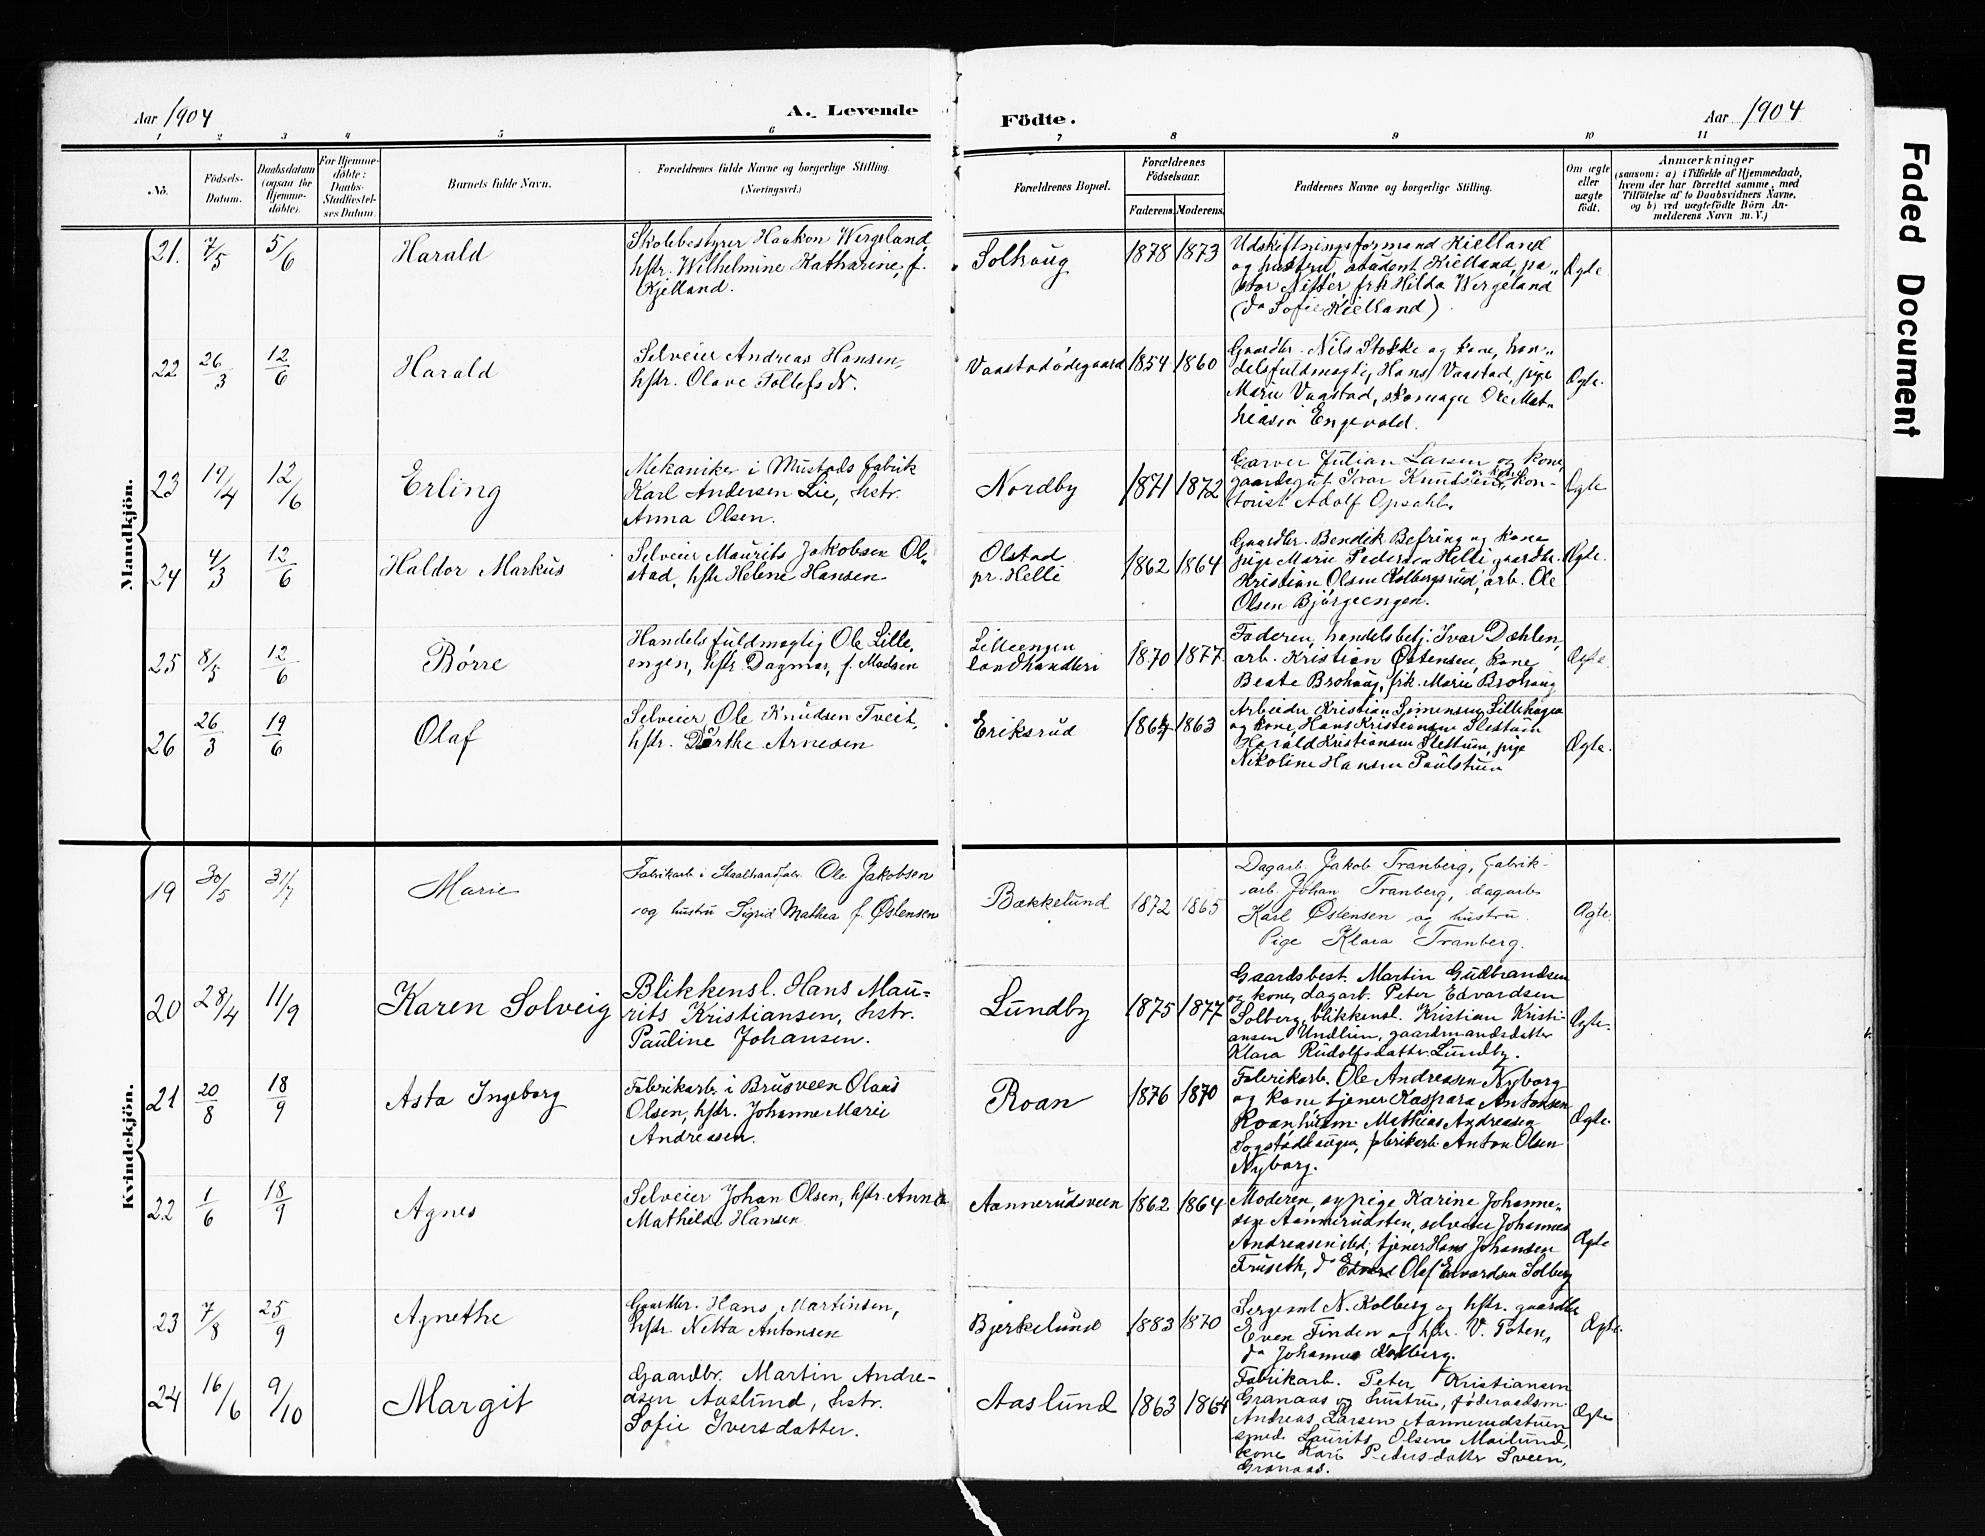 Aar 1904
A. Levende
Födte.
Aar 1904
1 2 3 4 5 6 7 8 9 10 11
No. Födsels-Datum. Daabsdatum (ogsaa for Hjemmedöbte). For Hjemmedöbte: Daabs-Stadfæstelses Datum. Barnets fulde Navn. Forældrenes fulde Navne og borgerlige Stilling. (Næringsvei.)
Forældrenes Bopæl. Forældrenes Födselsaar. Faderens. Moderens. Faddernes Navne og borgerlige Stilling. Om ægte eller uægte födt. Anmærkninger
(saasom: a) i Tilfælde af Hjemmedaab, hvem der har forrettet samme, med Tilföielse af to Daabsvidners Navne, og b) ved uægtefödte Börn Anmelderens Navn m. V.)
Mandkjön.
21. 7/5 5/6 Harald
Skolebestyrer Haakon Wergeland,
hstr. Wilhelmine Katharine, f.
Kjelland.
Solhaug 1878 1873
Udskiftningsformand Kielland
og hustru, student Kielland, pa„
stor Nitter, frk Hilda Wergeland
(do Sofie Kielland)
Ægte
22 26/3 12/6 Harald
Selveier Andreas Hansen,
hstr. Olave Tollefsdr.
Vaastadødegaard 1854 1860
Gaardbr. Nils Stokke og kone, han„
delsfuldmægtig Hans Vaastad, pige
Marie Vaastad, skomager Ole Mat„
hiasen Engevold.
Ægte.
23 14/4 12/6 Erling
Mekaniker i Mustads fabrik
Karl Andersen Lie, hstr.
Anna Olsen.
Nordby 1871 1872
Garver Julian Larsen og kone,
gaardsgut Ivar Knudsen og kone, kon-
torist Adolf Opsahl.
Ægte
24 4/3 12/6 Haldor Markus
Selveier Maurits Jakobsen Ol„
stad, hstr Helene Hansen
Olstad
pr. Helli
1862 1864
Gaardbr. Bendik Befring og kone
pige Marie Pedersen Helli gaardbr.
Kristian Olsen Kolbergsrud, arb. Ole
Olsen Bjørgeengen.
Ægte.
25 8/5 12/6 Børre
Handelsfuldmægtig Ole Lille„
engen, hstr. Dagmar, f. Madsen
Lilleengen
landhandleri
1870 1877
Faderen, handelsbetj. Ivar Dæhlen,
arb. Kristian Østensen, kone
Beate Brohaug, frk. Marie Brohaug
Ægte
26 26/3 19/6 Olaf
Selveier Ole Knudsen Tveit,
hstr. Dorthe Arnesen
Eriksrud 1864 1863
Arbeider Kristian Simensen Lillehagen
og kone, Hans Kristiansen Slettum
Harald Kristiansen Slettum, pige
Nikoline Hansen Paulstuen
Ægte.
Kvindekjön.
19 30/5 31/7 Marie
Fabrikarb i Staaltraadfabr. Ole Jakobsen
og hustru Sigrid Mathea f. Østensen
Bækkelund 1872 1865
Dagarb. Jakob Tranberg, fabrik-
arb. Johan Tranberg, dagarb
Karl Østensen og hustru.
Pige Klara Tranberg.
Ægte.
20 28/4 11/9 Karen Solveig
Blikkensl. Hans Mau-
rits Kristiansen, hstr.
Pauline Johansen.
Lundby 1875 1877
Gaardsbest. Martin Gudbrandsen
og kone, dagarb. Peter Edvardsen
Solberg, blikkensl. Kristian Kristi-
ansen Undlien, gaardmandsdatter
Klara Rudolfsdatter Lundby.
Ægte.
21 20/8 18/9 Asta Ingeborg
Fabrikarb. i Brusveen Olaus
Olsen, hstr. Johanne Marie
Andreasen.
Roan 1876 1870
Fabrikarb. Ole Andreasen Nyborg
og kone tjener Kaspara Antonsen
Roan, husm. Mathias Andreasen
Sogstadhaugen, fabrikarb Anton Olsen
Nyborg.
Ægte.
22 1/6 18/9 Agnes
Selveier Johan Olsen, hstr. Anna
Mathilde Hansen
Aannerudsveen 1862 1864
Moderen, sypige Karine Johanne„
sen Aannerudsten, selveier Johannes
Andreasen ibd, tjener Hans Johansen
Fruseth, do Olaf Edvardsen Solberg
Ægte
23 7/8 25/9 Agnethe
Gaardbr. Hans Martinsen,
hstr Netta Antonsen
Bjerkelund 1883 1870
Sergeant N. Kolberg og hstr. gaardbr
Even Finden og hstr. V. Toten,
do Johannes Kolberg.
Ægte.
24 16/6 9/10 Margit
Gaardbr. Martin Andre-
asen Aaslund, hstr.
Sofie Iversdatter.
Aaslund 1863 1864
Fabrikarb. Peter Kristiansen
Granaas og hustru, føderaadsm.
Andreas Larsen Aannerudstuen
smed Laurits Olsen Mailund,
kone Kari Pedersdatter Sveen,
Granaas.
Ægte
Faded Document